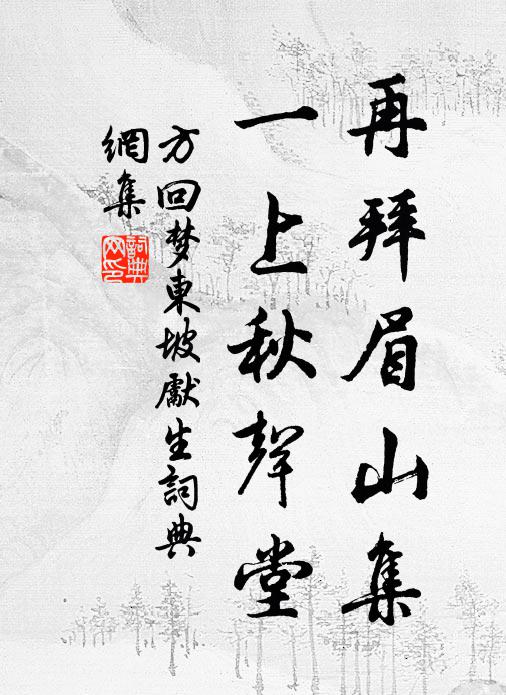 再拜眉山集
一上秋聲堂
方回梦東坡獻生詞典
網集
詞典網印